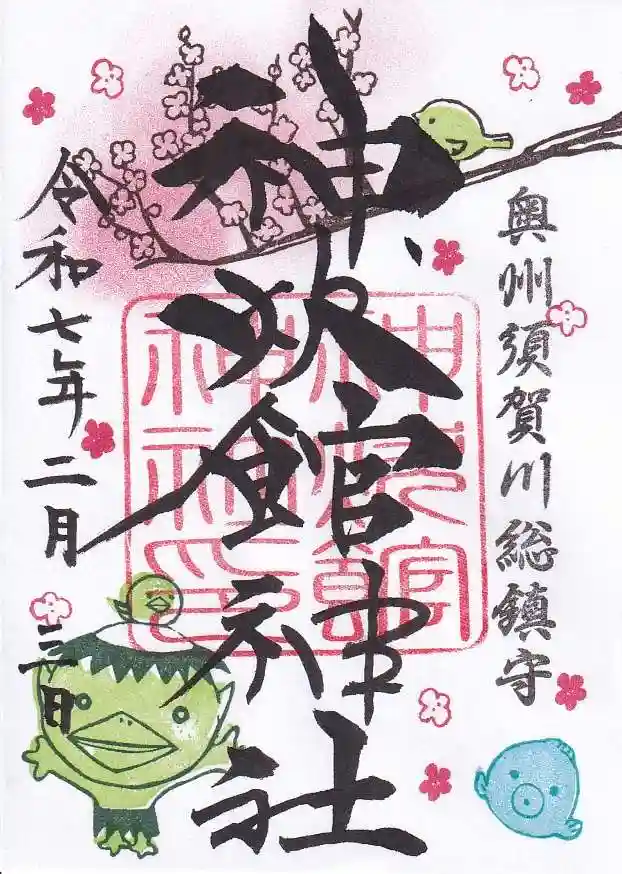 奥州須賀川総鎮守
神炊館神社
令和七年二月三日
神炊館神社印